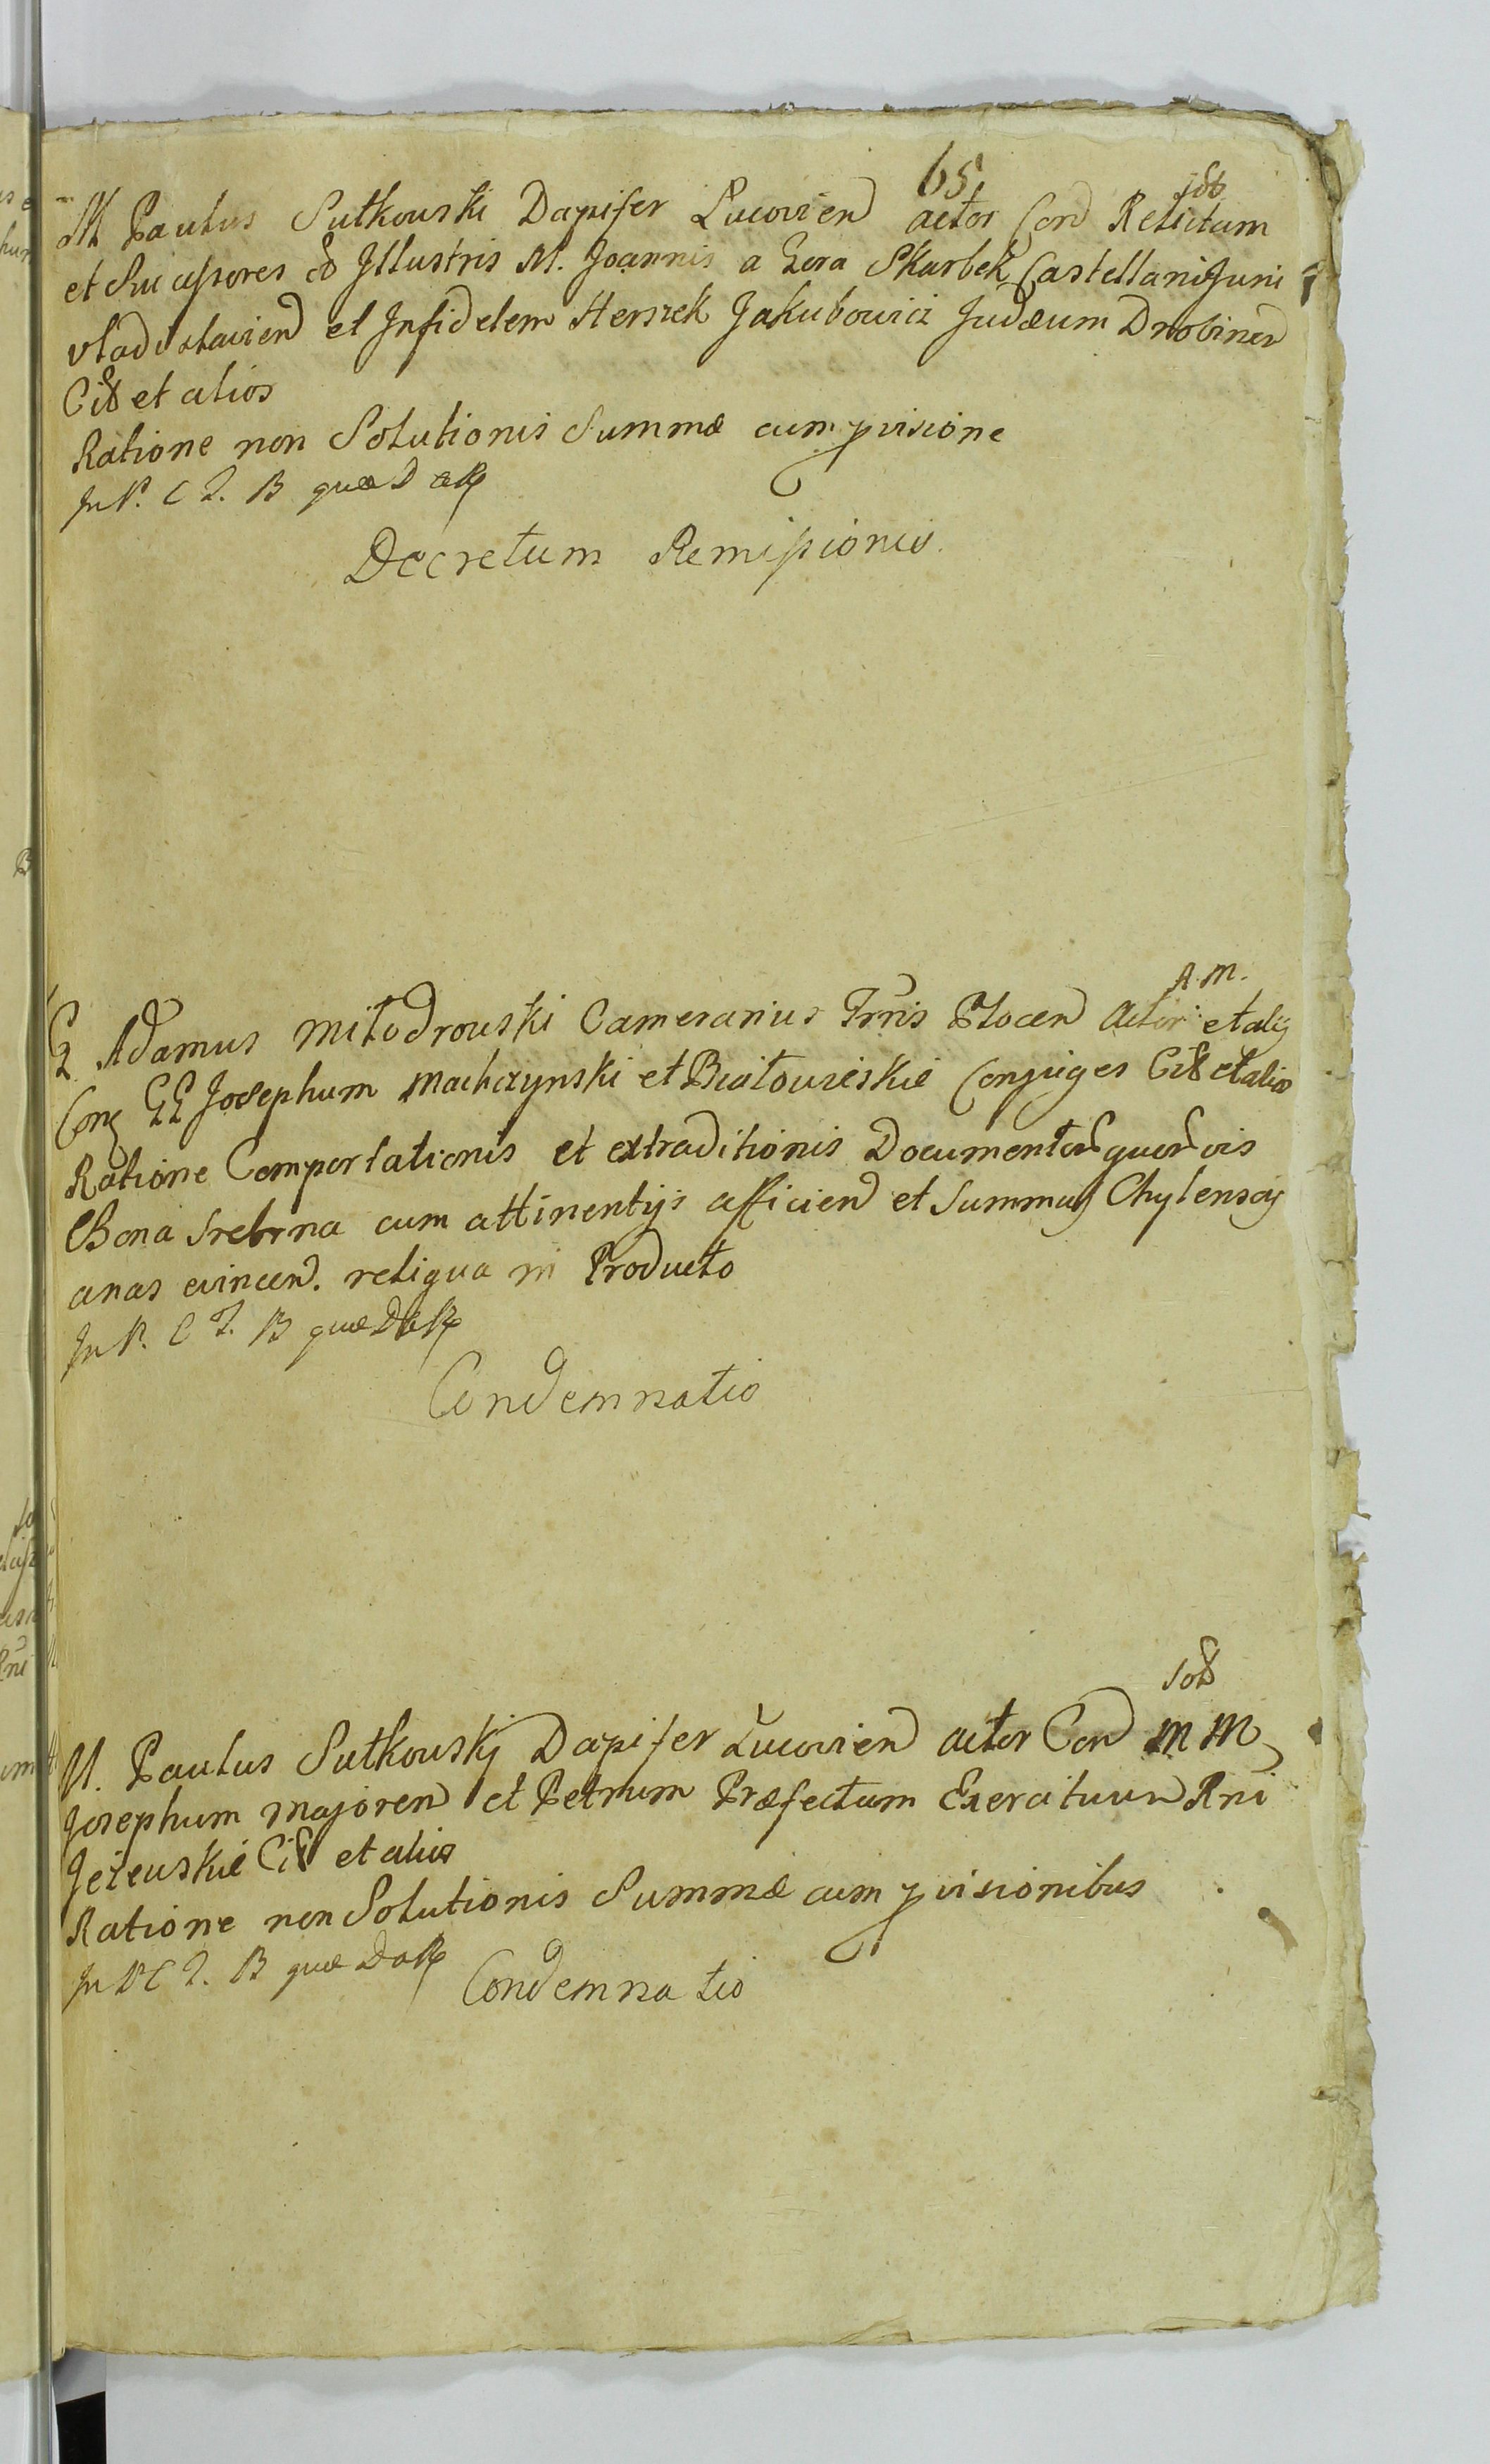 65
M Paulus Sutkouski Dapifer Lucovien actor Con Relictam
et Sucessores Illustris M. Joannis a Gora Skarbek Castellani Juni
vladislavien et Infidelem Herszek Jakubowicz Judæum Drobinen
Cit et alios
Ratione non Solutionis Summæ cum pvisione
In P. C T. B quæ D
Decretum Remissionis.
A. M.
G Adamus Miłodrouski Camerarius Trris Płocen Actor et alij
Con GG Josephum Machczynski et Białowieskie Conjuges Cit et alios
Ratione Comportationis et extraditionis Documentor quorvis
Bona Srebrna cum attinentijs afficien et Summas Chylensci
anas evincen. reliqua in Producto
In P. C T. B quæ D
Condemnatio
M. Paulus Sutkouskj Dapifer Lucovien actor Con M M
Josephum majoren et Petrum Præfectum Exercituun Rni
Jeżeuskie Cit et alios
Ratione non Solutionis Summæ cum pvisionibus
In P C T. B quæ D
Condemnatio